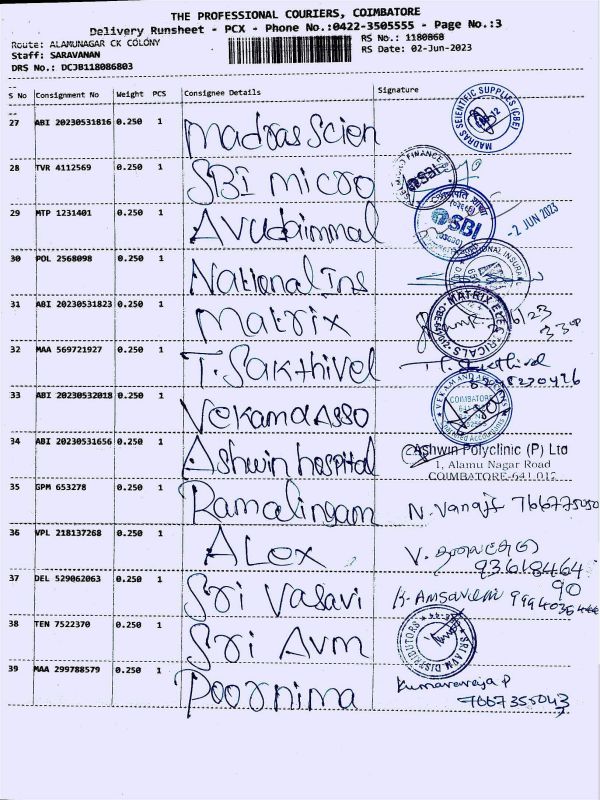 THE PROFESSIONAL COURIERS, COIMBATORE
Delivery Runsheet - PCX - Phone No.:0422-3505555 - Page No.:3
Route: ALAMUNAGAR CK COLONY
RS No.: 1180868
Staff: SARAVANAN
RS Date: 02-Jun-2023
DRS No.: DCJB118086803
S No Consignment No Weight PCS Consignee Details Signature
27 ABI 20230531816 0.250 1 Madras Scien
MADRAS SCIENTIFIC SUPPLIES (CBE)
28 TVR 4112569 0.250 1 SBI micro
FINANCE
SBI
29 MTP 1231401 0.250 1 Avudaimmal
SBI
-2 JUN 2023
30 POL 2568098 0.250 1 National Ins
31 ABI 20230531823 0.250 1 Matrix
MATRIX
32 MAA 569721927 0.250 1 T. Sakthivel
33 ABI 20230532018 0.250 1 Vekamd Asso
COIMBATORE
34 ABI 20230531656 0.250 1 Ashwin hospital
Ashwin Polyclinic (P) Ltd
1, Alamu Nagar Road
COIMBATORE-641 012
35 GPM 653278 0.250 1 Ramalingam
36 VPL 218137268 0.250 1 ALex
37 DEL 529062063 0.250 1 Sri Vasavi
38 TEN 7522370 0.250 1 Sri Avm
SRI AVM DISTRIBUTORS
39 MAA 299788579 0.250 1 Poornima
7667355043